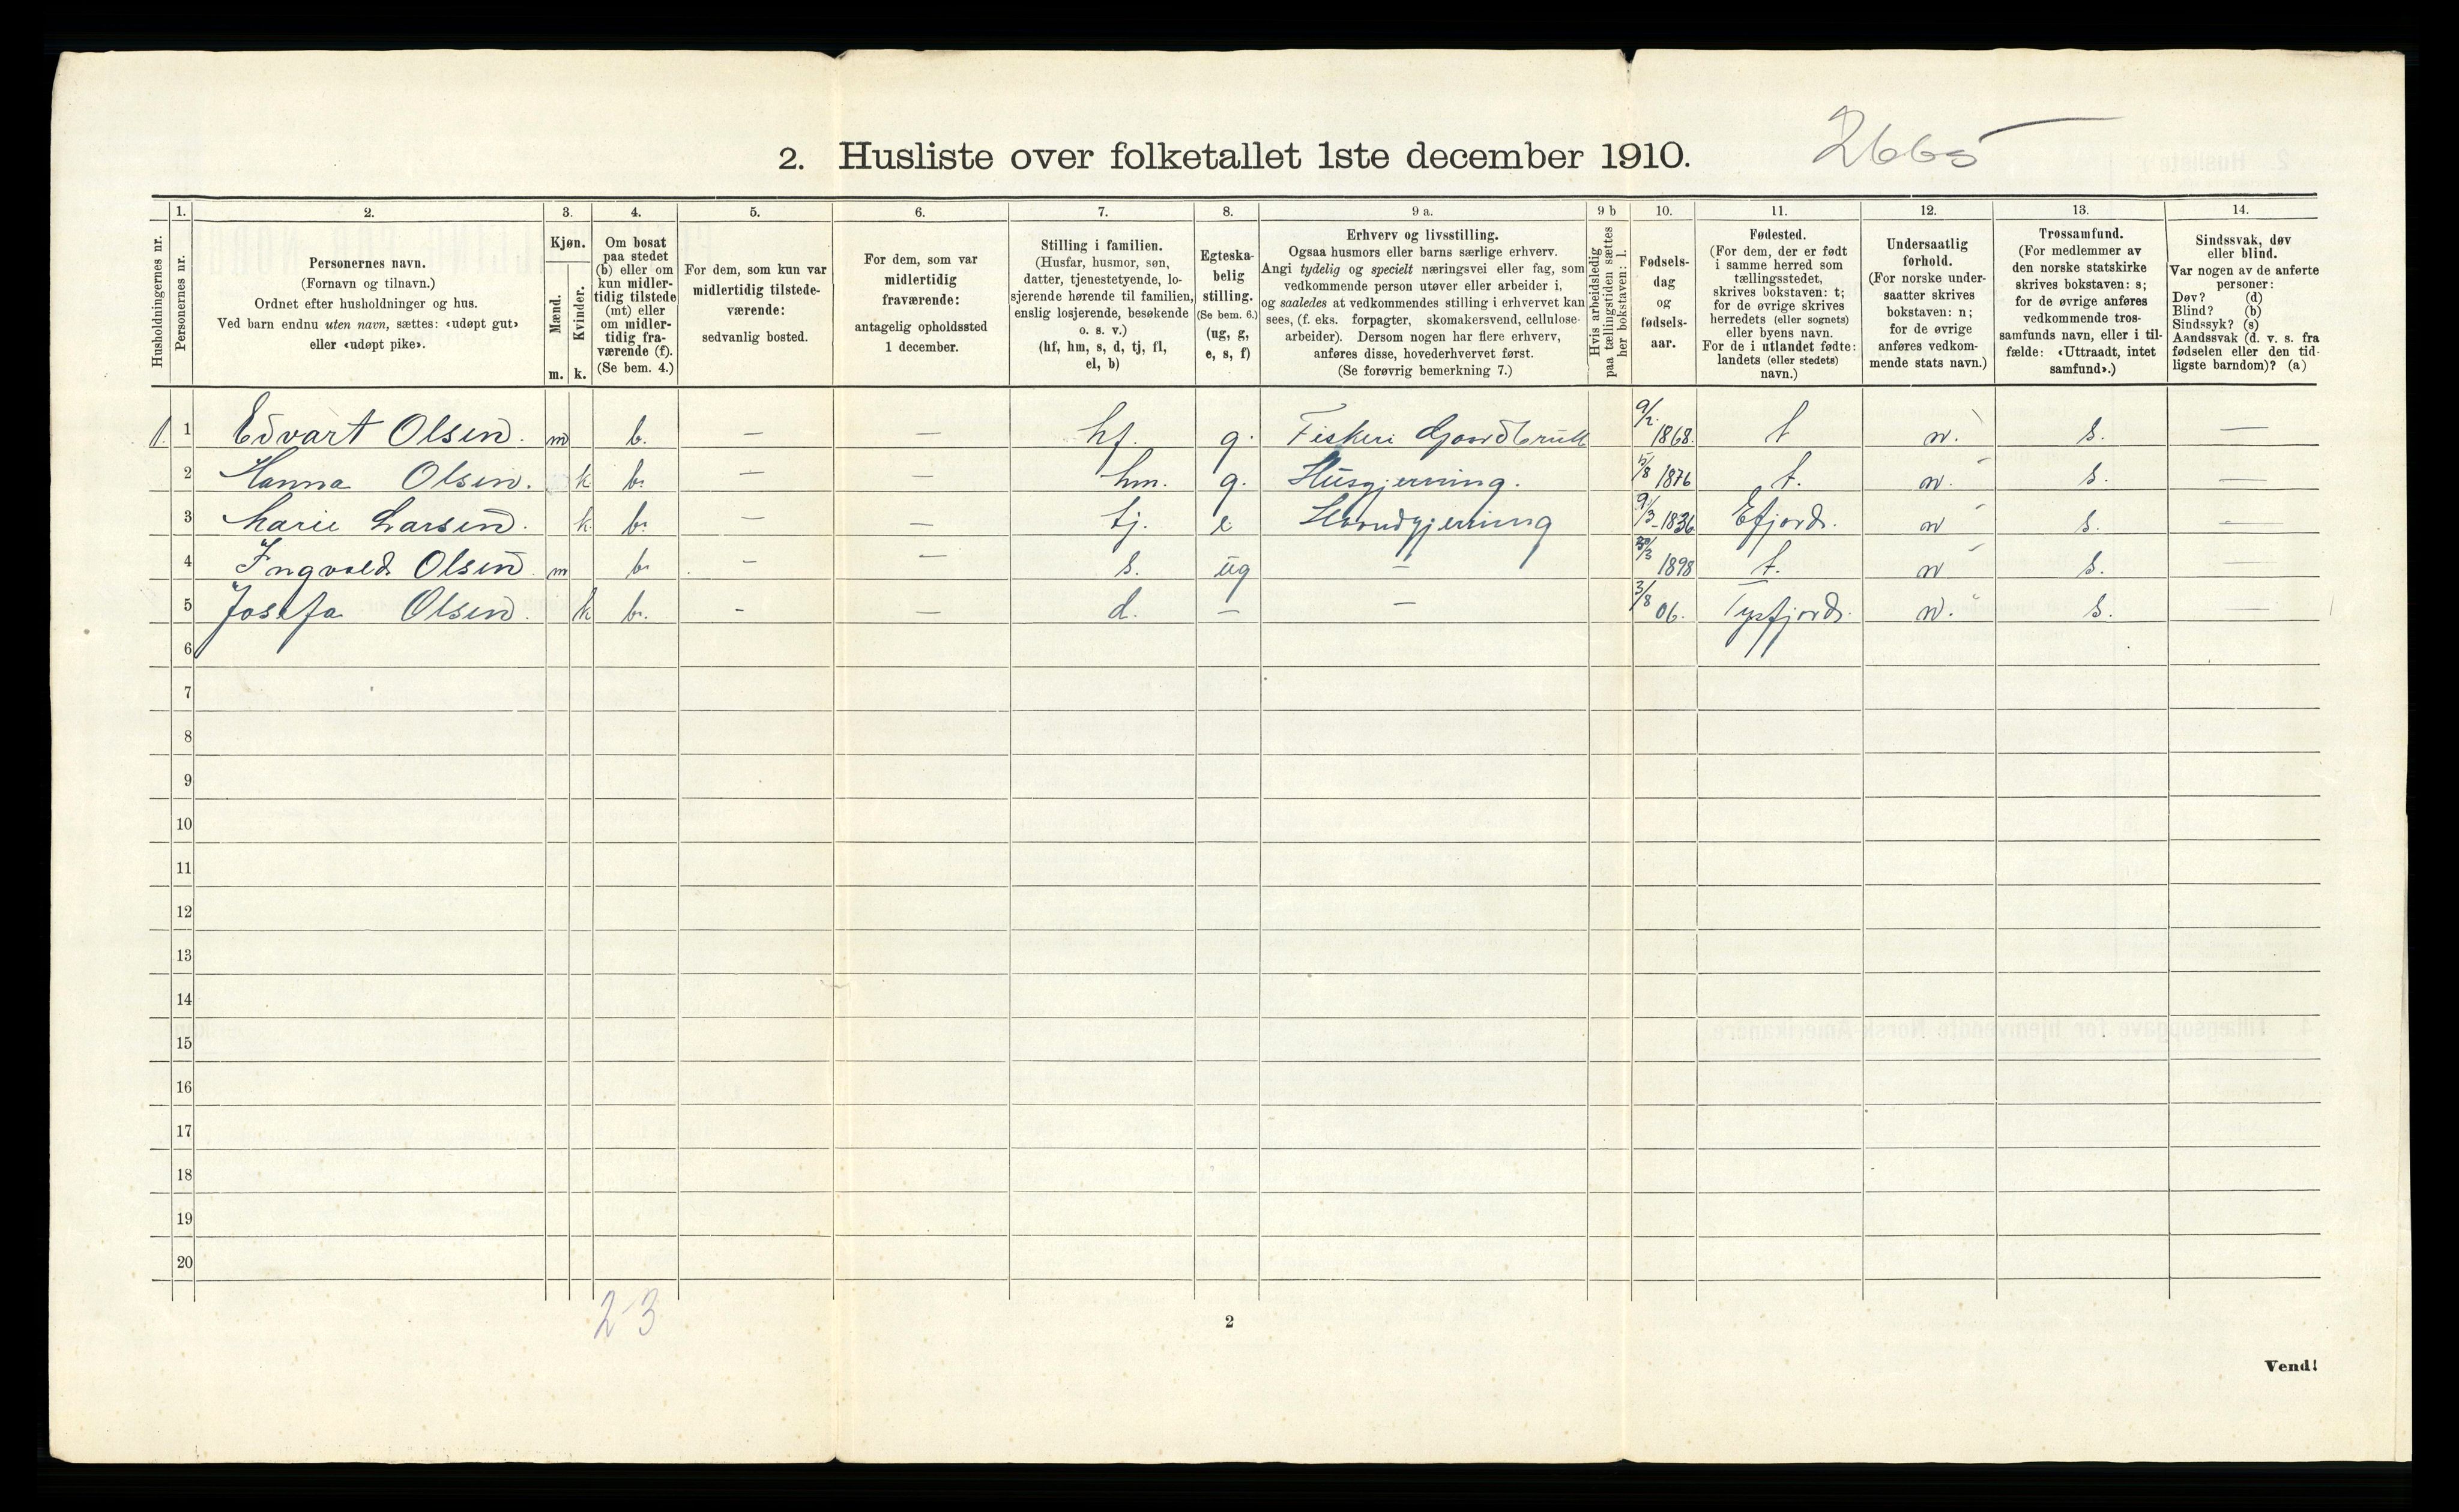 2665
2. Husliste over folketallet 1ste december 1910.
Husholdningernes nr.
1.
Personernes nr.
2.
Personernes navn.
(Fornavn og tilnavn.)
Ordnet efter husholdninger og hus.
Ved barn endnu uten navn, sættes: «udøpt gut»
eller «udøpt pike».
3.
Kjøn.
Mænd.
Kvinder.
m. k.
4.
Om bosat
paa stedet
(b) eller om
kun midler-
tidig tilstede
(mt) eller
om midler-
tidig fra-
værende (f).
(Se bem. 4.)
5.
For dem, som kun var
midlertidig tilstede-
værende:
sedvanlig bosted.
6.
For dem, som var
midlertidig
fraværende:
antagelig opholdssted
1 december.
7.
Stilling i familien.
(Husfar, husmor, søn,
datter, tjenestetyende, lo-
sjerende hørende til familien,
enslig losjerende, besøkende
o. s. v.)
(hf, hm, s, d, tj, fl,
el, b)
8.
Egteska-
belig
stilling.
(Se bem. 6.)
(ug, g,
e, s, f)
9 a.
Erhverv og livsstilling.
Ogsaa husmors eller barns særlige erhverv.
Angi tydelig og specielt næringsvei eller fag, som
vedkommende person utøver eller arbeider i,
og saaledes at vedkommendes stilling i erhvervet kan
sees, (f. eks. forpagter, skomakersvend, cellulose-
arbeider). Dersom nogen har flere erhverv,
anføres disse, hovederhvervet først.
(Se forøvrig bemerkning 7.)
9 b
Hvis arbeidsledig
paa tællingstiden sættes
her bokstaven: l.
10.
Fødsels-
dag
og
fødsels-
aar.
11.
Fødested.
(For dem, der er født
i samme herred som
tællingsstedet,
skrives bokstaven: t;
for de øvrige skrives
herredets (eller sognets)
eller byens navn.
For de i utlandet fødte:
landets (eller stedets)
navn.)
12.
Undersaatlig
forhold.
(For norske under-
saatter skrives
bokstaven: n;
for de øvrige
anføres vedkom-
mende stats navn.)
13.
Trossamfund.
(For medlemmer av
den norske statskirke
skrives bokstaven: s;
for de øvrige anføres
vedkommende tros-
samfunds navn, eller i til-
fælde: «Uttraadt, intet
samfund».)
14.
Sindssvak, døv
eller blind.
Var nogen av de anførte
personer:
Døv? (d)
Blind? (b)
Sindssyk? (s)
Aandssvak (d. v. s. fra
fødselen eller den tid-
ligste barndom)? (a)
1. 1 Edvart Olsen. m b. — — hf. g. Fiskeri Gaardbruk 1868. t n. s. —
2 Hanna Olsen. k b. — — hm. g. Husgjerning. 5/8 1876 t. n. s. —
3 Marie Larsen. k b. — — tj. e. Haandgjerning 1836 Efjord. n s. —
4 Ingvald Olsen. m b. — — s. ug — 1898 t. n s. —
5 Josefa Olsen. k b. - — d. — — 3/8 06. Tysfjord. n. s. —
6
7
8
9
10
11
12
13
14
15
16
17
18
19
20
2-3
2
Vend!